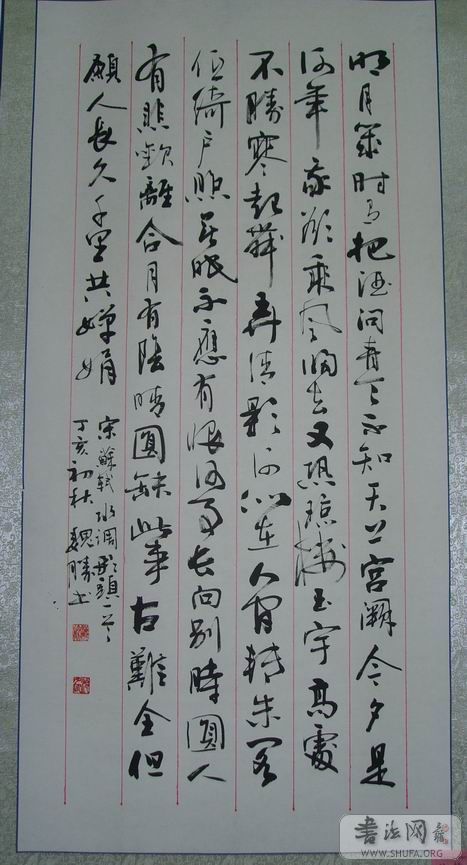 明月幾时有把酒问青天不知天上宫阙今夕是
何年我欲乘风归去又恐琼楼玉宇高處
不勝寒起舞弄清影何似在人间转朱阁
低绮户照无眠不應有恨何事长向别時圓人
有悲歡離合月有陰晴圓缺此事古難全但
願人長久千里共嬋娟
宋蘇軾水调歌頭一首
丁亥初秋魏勝书
书法网
WWW.SHUFA.ORG